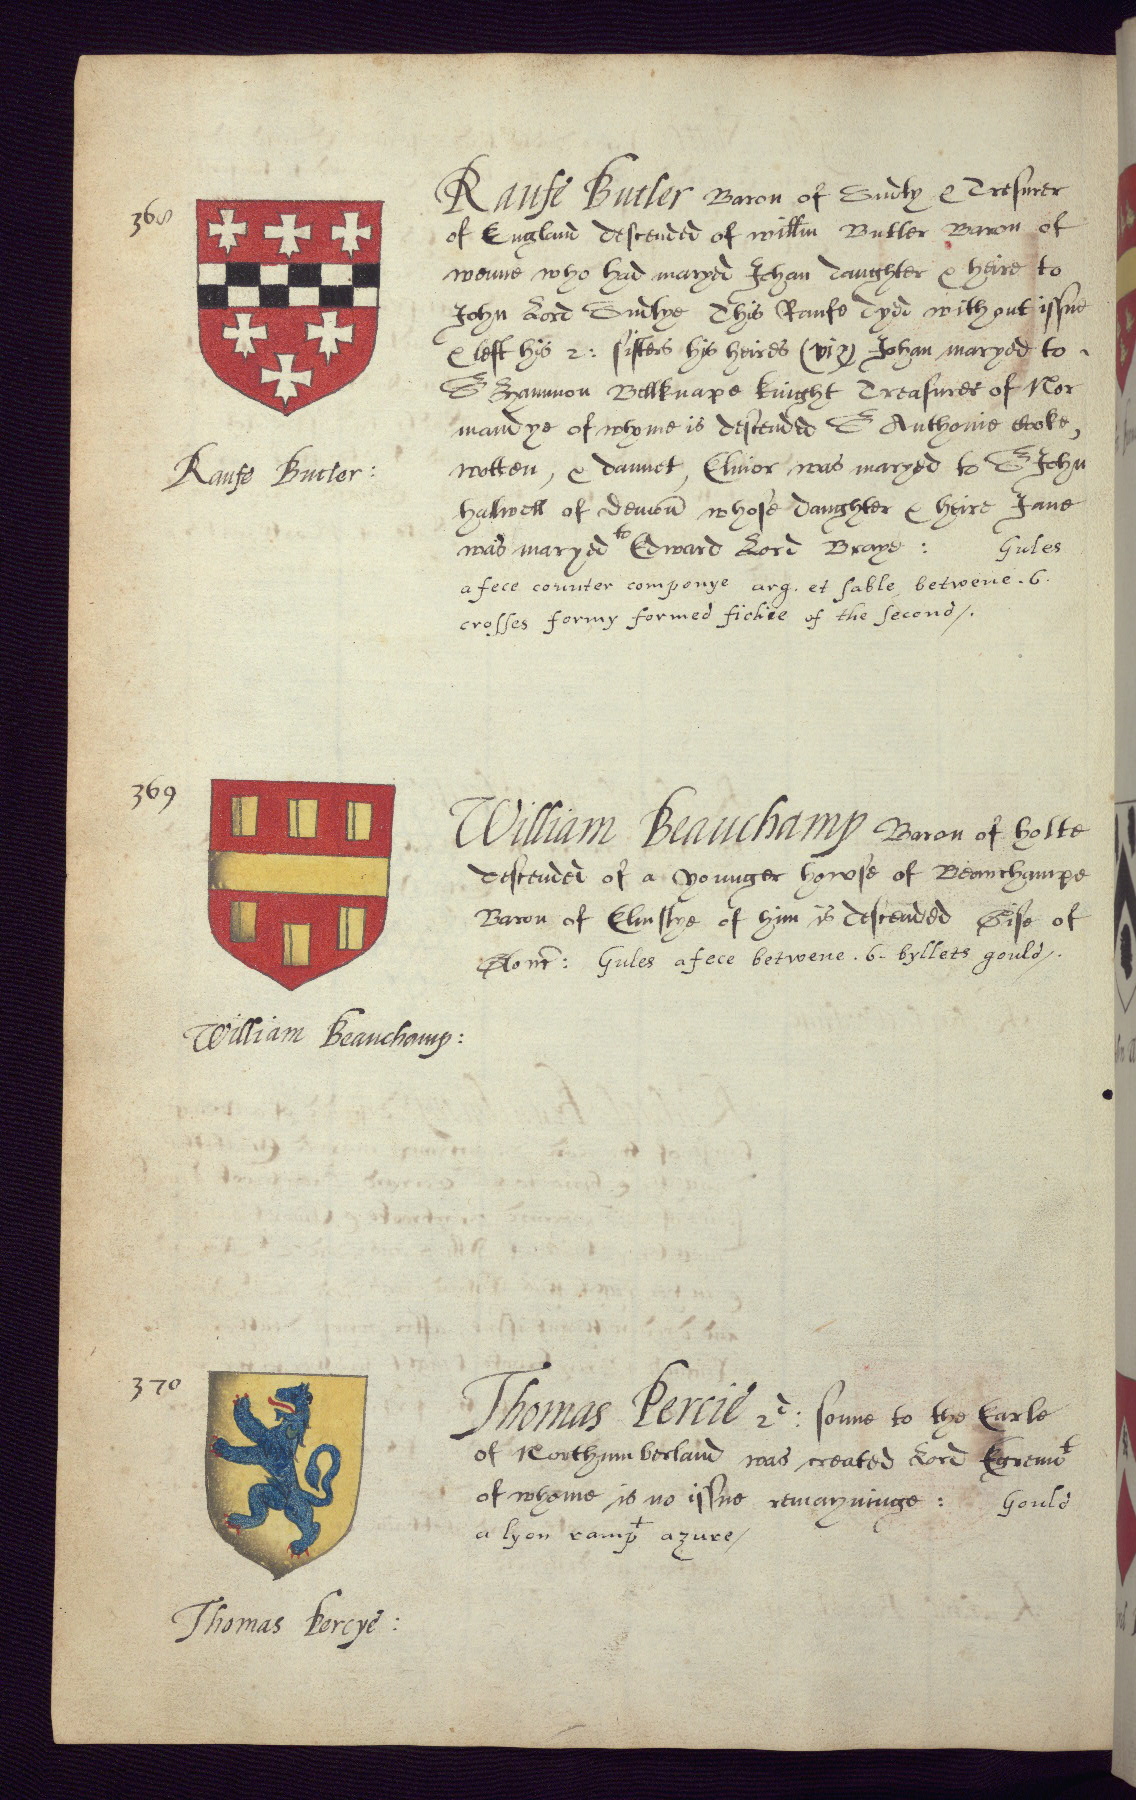 368
Raufe Butler Baron of Sudly & Tresurer
of England descended of willm Butler Baron of
wemme who had maryed Johan daughter & heire to
John Lord Sudlye This Raufe dyed without issue
& left his 2: sisters his heires (viz) Johan maryed to
Sr Hammon Bellknape knight Treasurer of Nor
mandye of whome is descended Sr Anthonie Cooke,
wotten, & dannet, Elinor was maryed to Sr John
hallwell of devon whose daughter & heire Jane
was maryed to Edward Lord Braye : Gules
a fece counter componye arg. et sable betwene . 6.
crosses formy formed fichie of the second/.
Raufe Butler :
369
William Beauchamp Baron of holte
descended of a younger howse of Beauchampe
Baron of Elmslye of him is descended Gise of
Glouc : Gules a fece betwene . 6. byllets gould/.
William Beauchamp :
370
Thomas Percie 2d : sonne to the Earle
of Northumberland was created Lord Egremt
of whome is no issue remayninge : Gould
a lyon rampt azure/
Thomas Percye :